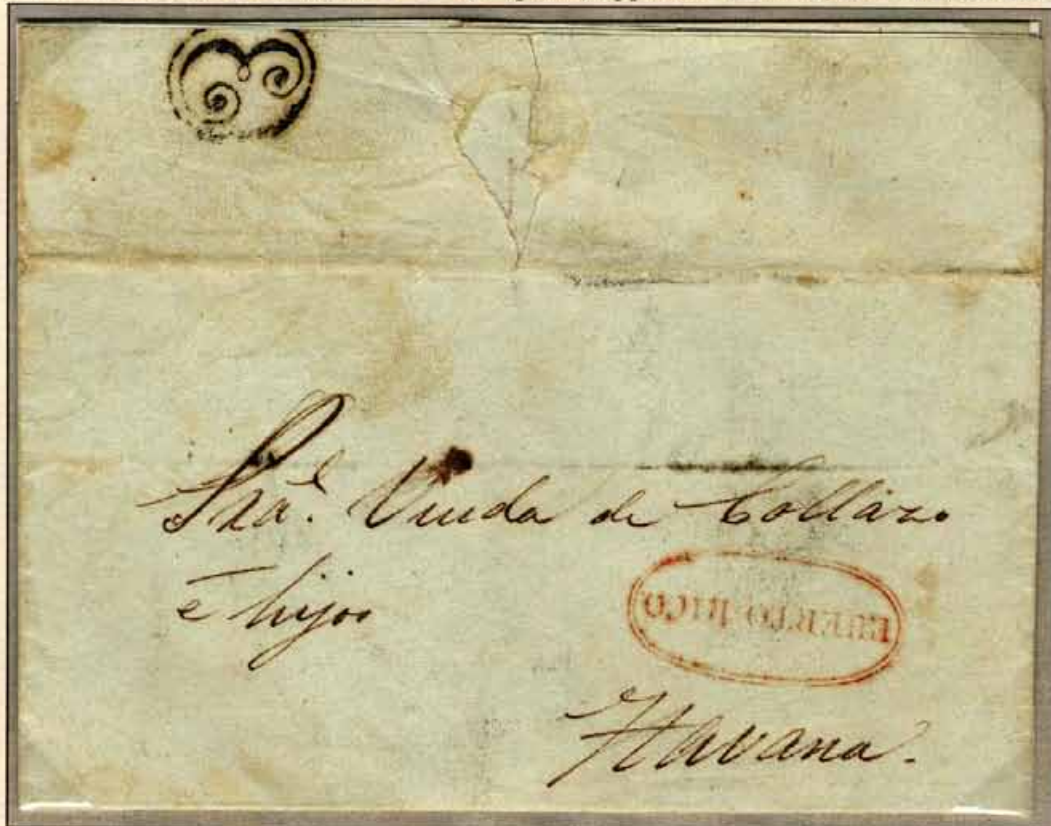 Sra. Viuda de Collazo
é hijos
PUERTO RICO
Havana.